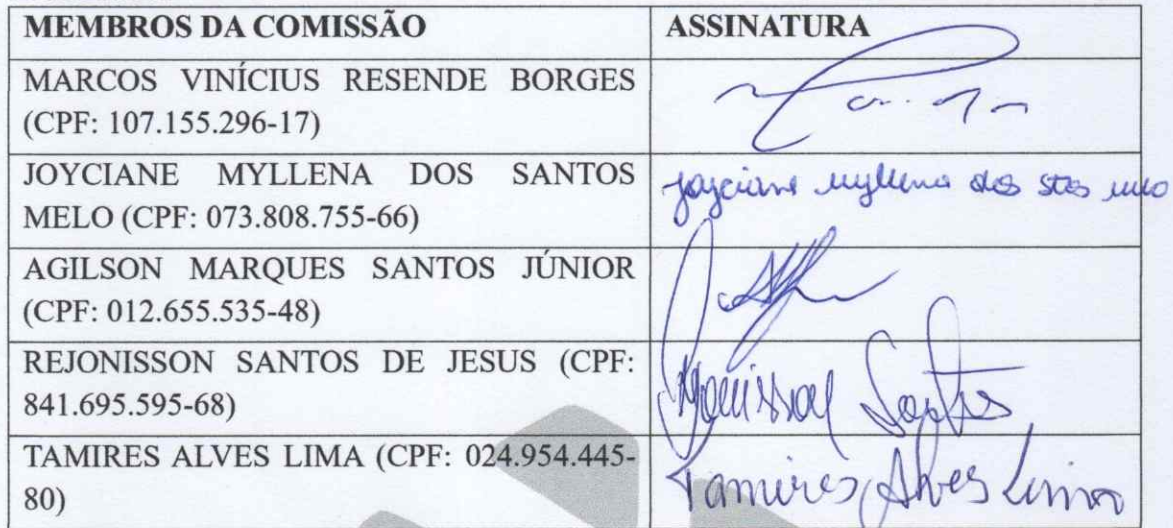 MEMBROS DA COMISSÃO ASSINATURA
MARCOS VINÍCIUS RESENDE BORGES
(CPF: 107.155.296-17)
JOYCIANE MYLLENA DOS SANTOS
MELO (CPF: 073.808.755-66)
Joyciane Myllena dos stos melo
AGILSON MARQUES SANTOS JÚNIOR
(CPF: 012.655.535-48)
REJONISSON SANTOS DE JESUS (CPF:
841.695.595-68)
Santos
TAMIRES ALVES LIMA (CPF: 024.954.445-
80)
Tamires Alves Lima